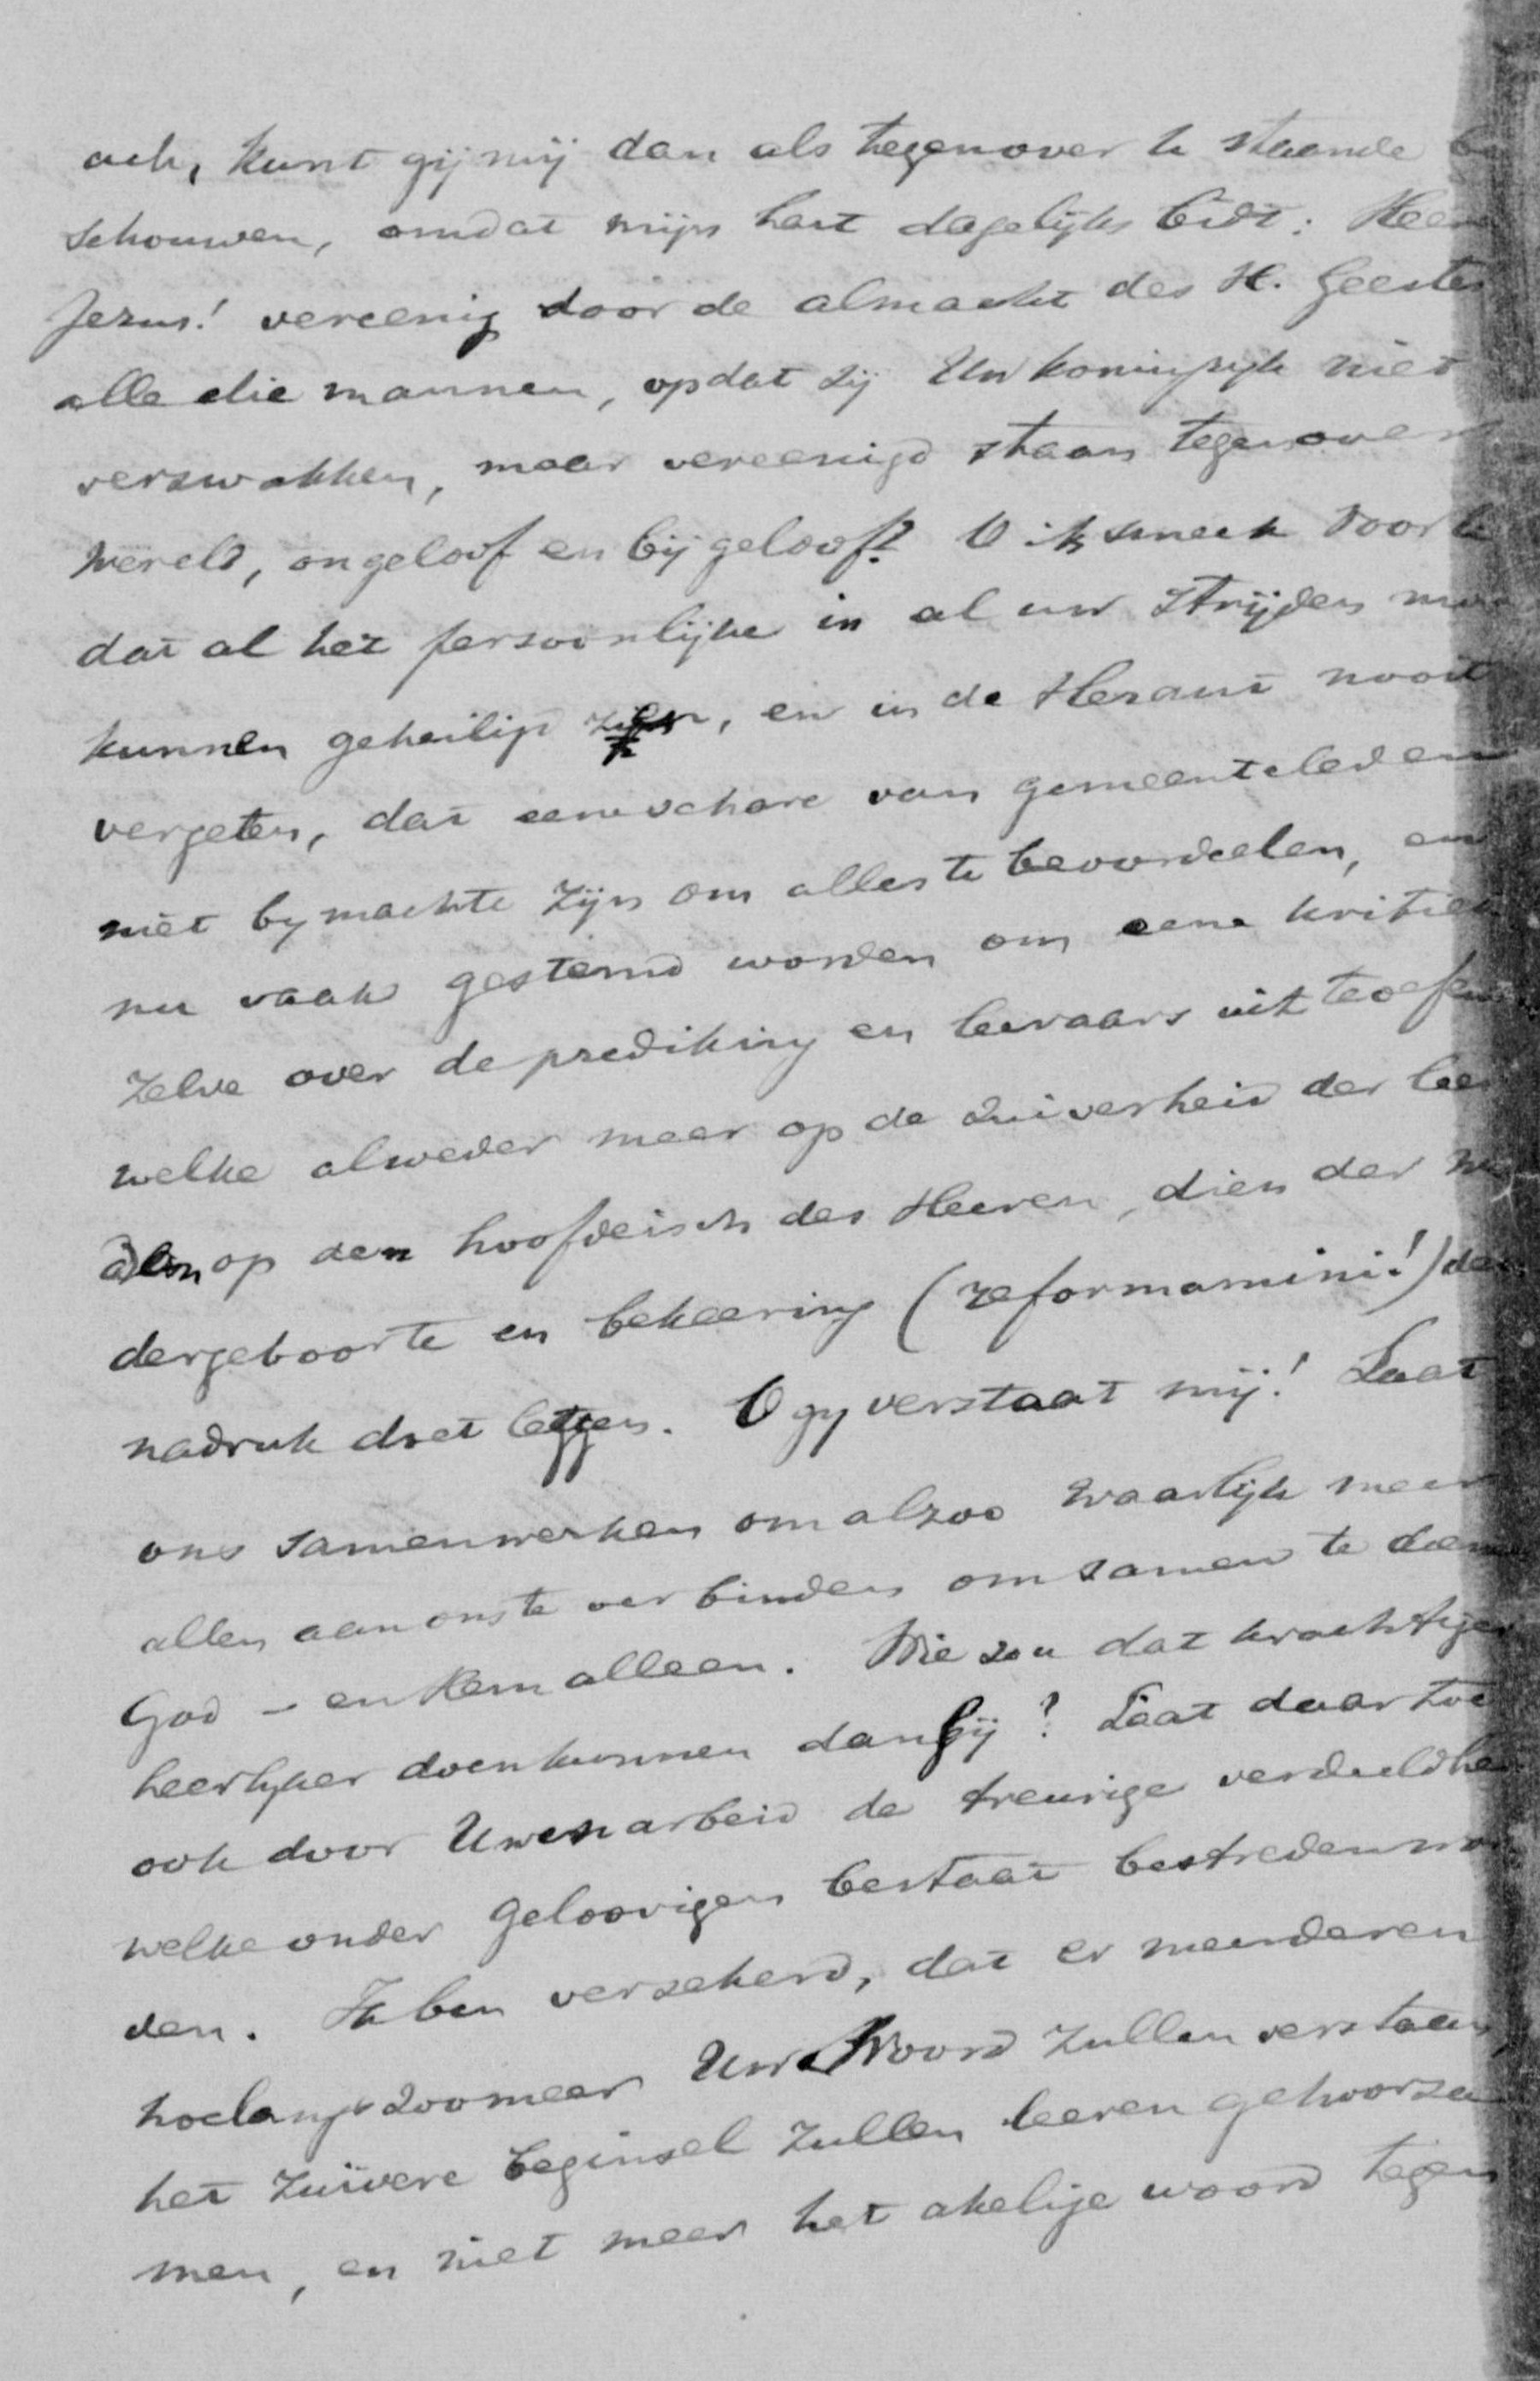 ach, kunt gij mij dan als tegenover te staande be
schouwen, omdat mijn hart dagelijks bidt: Heere
Jezus! vereenig door de almacht des H. Geestes
alle die mannen, opdat zij Uw koningrijk niet
verzwakken, maar vereenigd staan tegenover
wereld, ongeloof en bijgeloof? O ik smeek voor U
dat al het persoonlijke in al uw strijden
kunnen geheiligd zijn, en in de Heraut nooit
vergeten, dat eene schare van gemeenteleden
niet by machte zijn om alles te beoordeelen, en
nu vaak gestemd worden om eene kritiek
zelve over de prediking en leeraars uit te oefen
welke alweder meer op de zuiverheid der leer
dan op den hoofdeisch des Heeren, dien der we
dergeboorte en bekeering (reformamini!) den
nadruk doet leggen. O gy verstaat mij! Laat
ons samenwerken om alzoo waarlijk meer
allen aan ons te verbinden om samen te dienen
God – en Hem alleen. Wie zou dat krachtiger
heerlyker doen kunnen dan Gij? Laat daartoe
ook door Uwen arbeid de treurige verdeeldheid
welke onder geloovigen bestaat bestreden wor
den. Ik ben verzekerd, dat er meerderen
hoelangs zoo meer Uw Woord zullen verstaan,
het zuivere beginsel zullen leeren gehoorza
men, en niet meer het akelige woord tegen